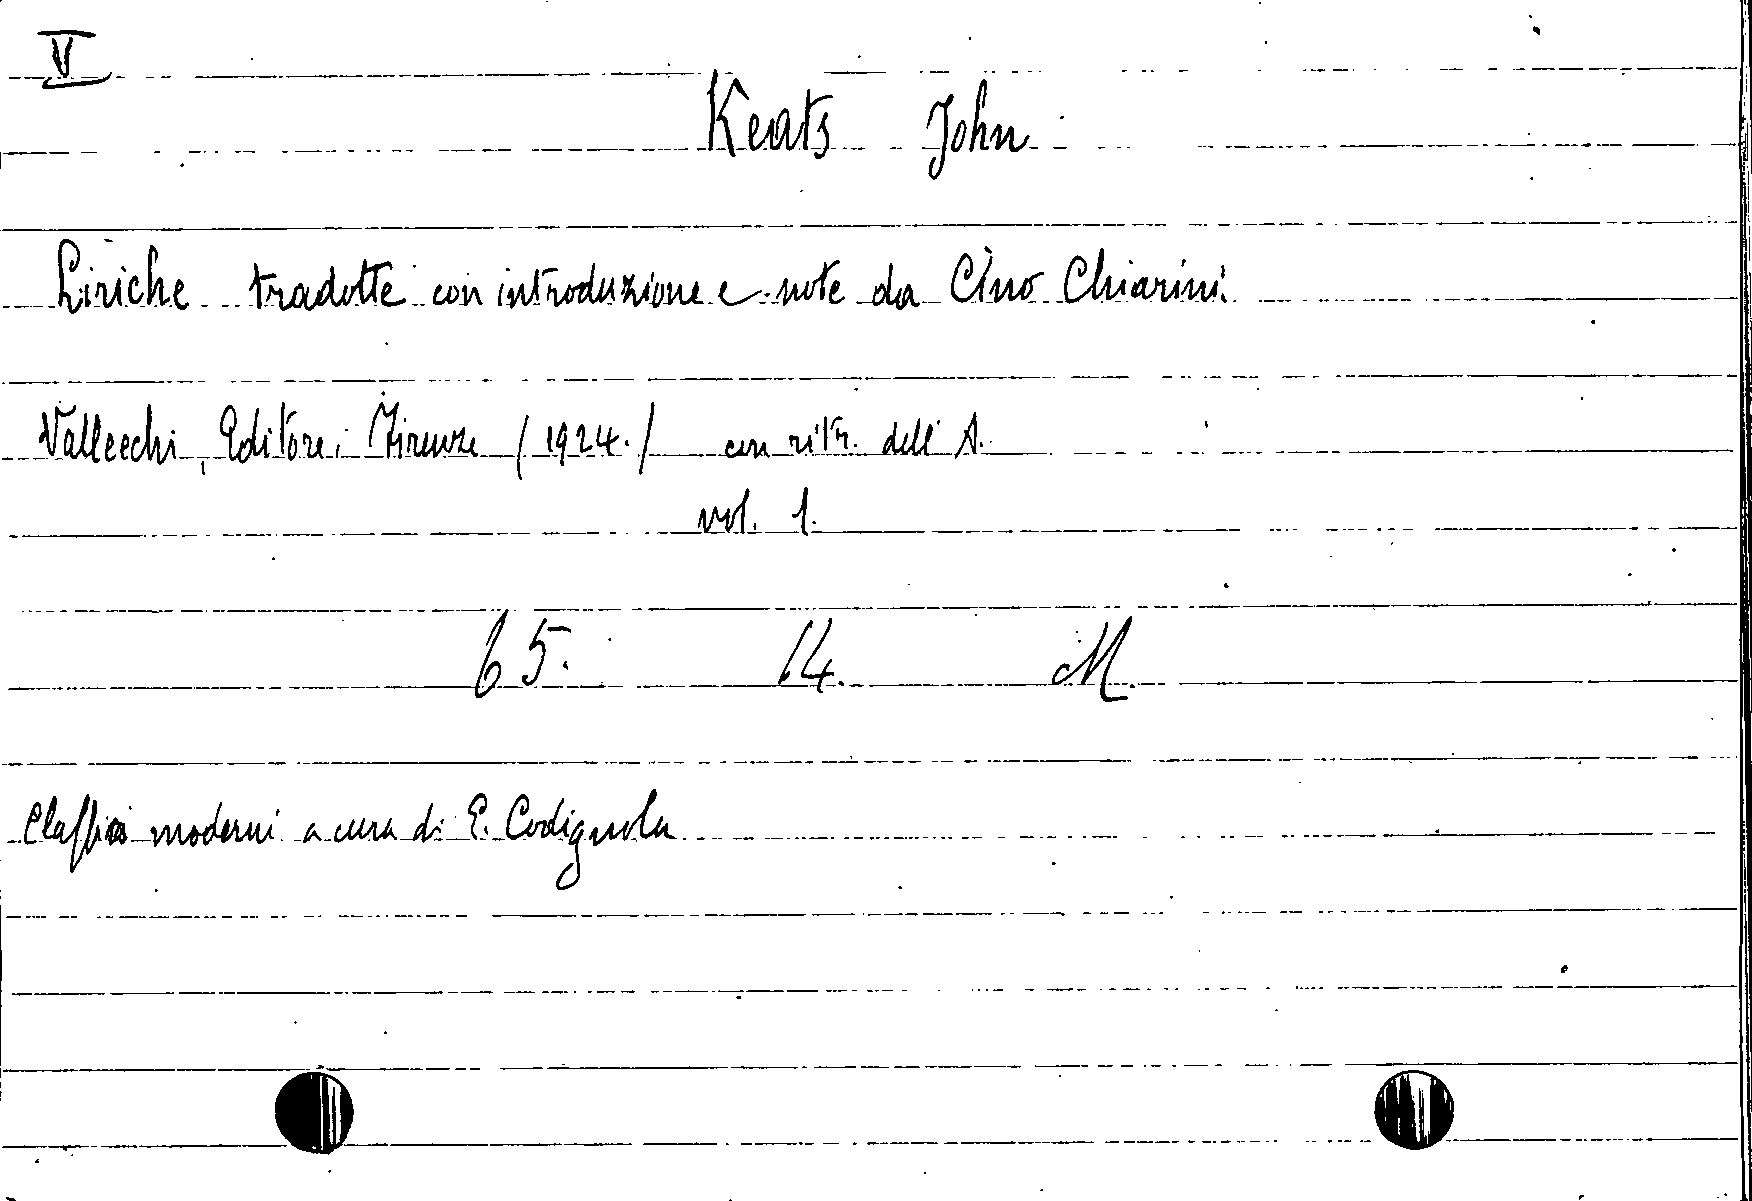 V
Keats John
Liriche tradotte con introduzione e note da Cino Chiarini.
Vallecchi, Editore, Firenze (1924.) con ritr. dell' A.
vol. 1.
65. 14. M.
Classici moderni a cura di E. Codignola